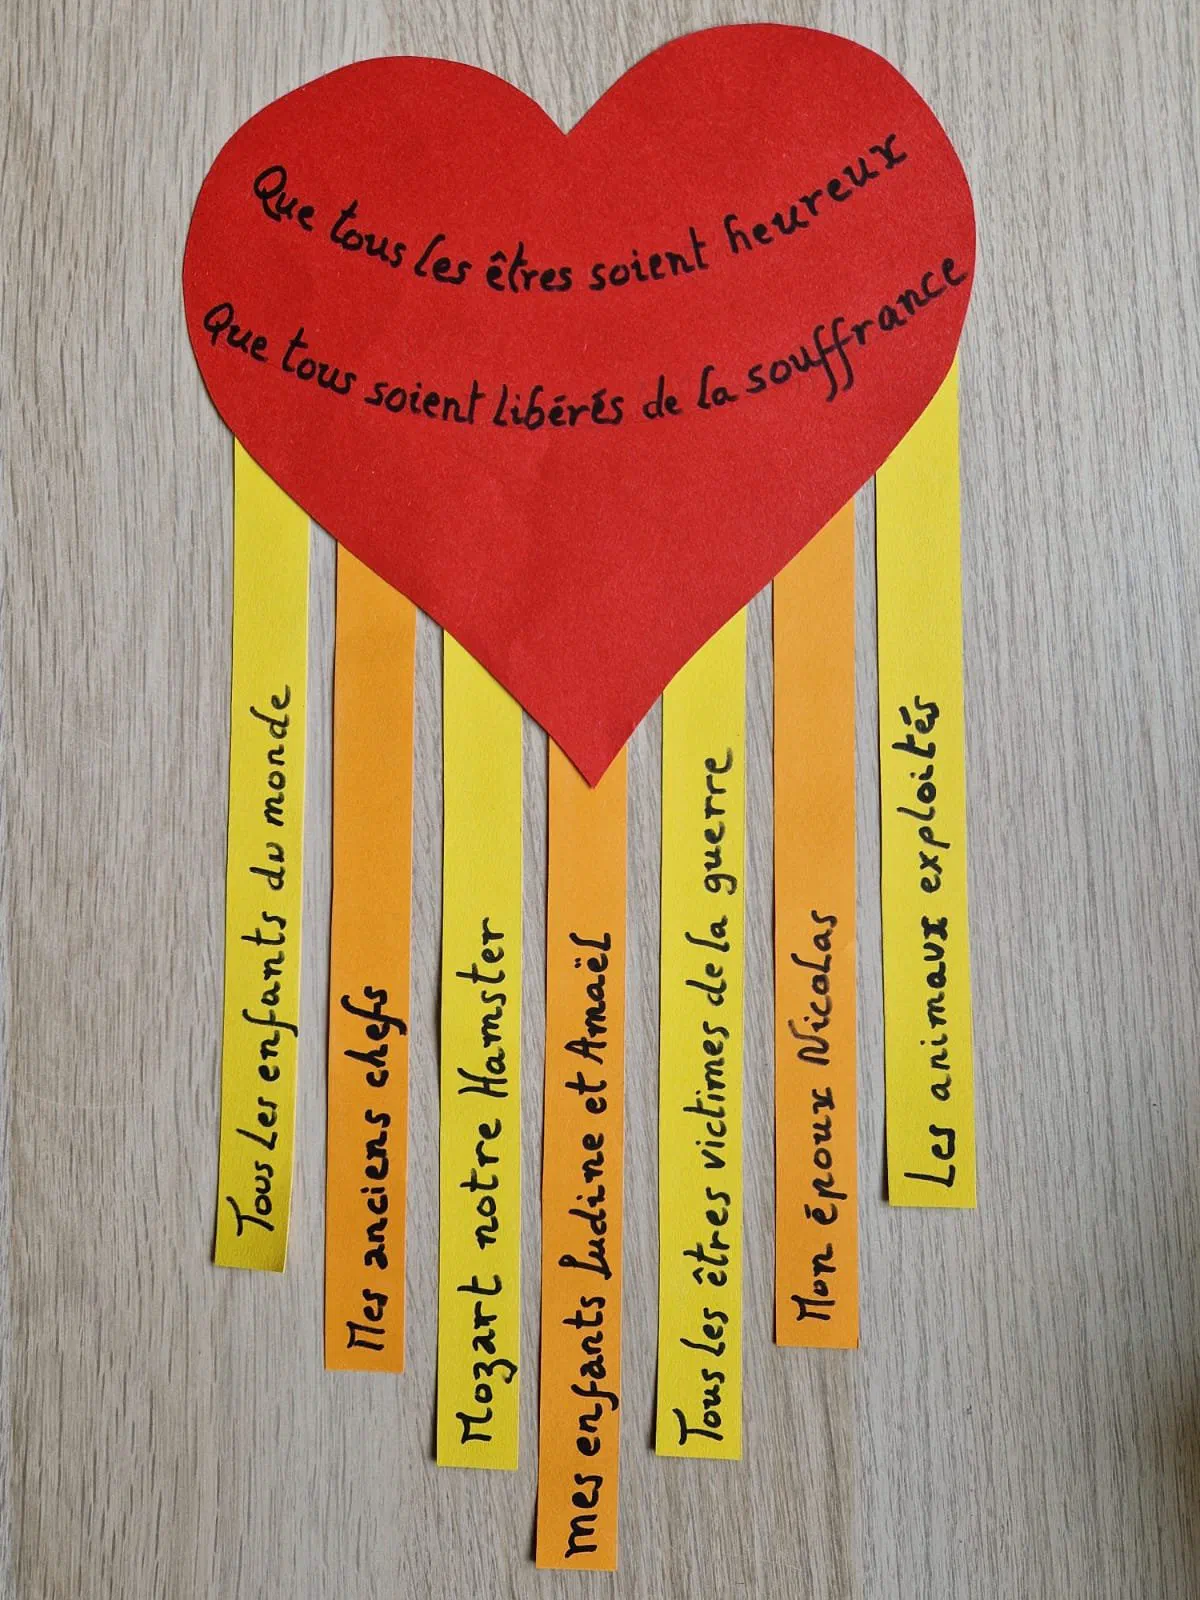 Que tous les êtres soient heureux
Que tous soient libérés de la souffrance
Tous les enfants du monde
Mes anciens chefs
Mozart notre Hamster
mes enfants Ludine et Amaël
Tous les êtres victimes de la guerre
Mon époux Nicolas
Les animaux exploités